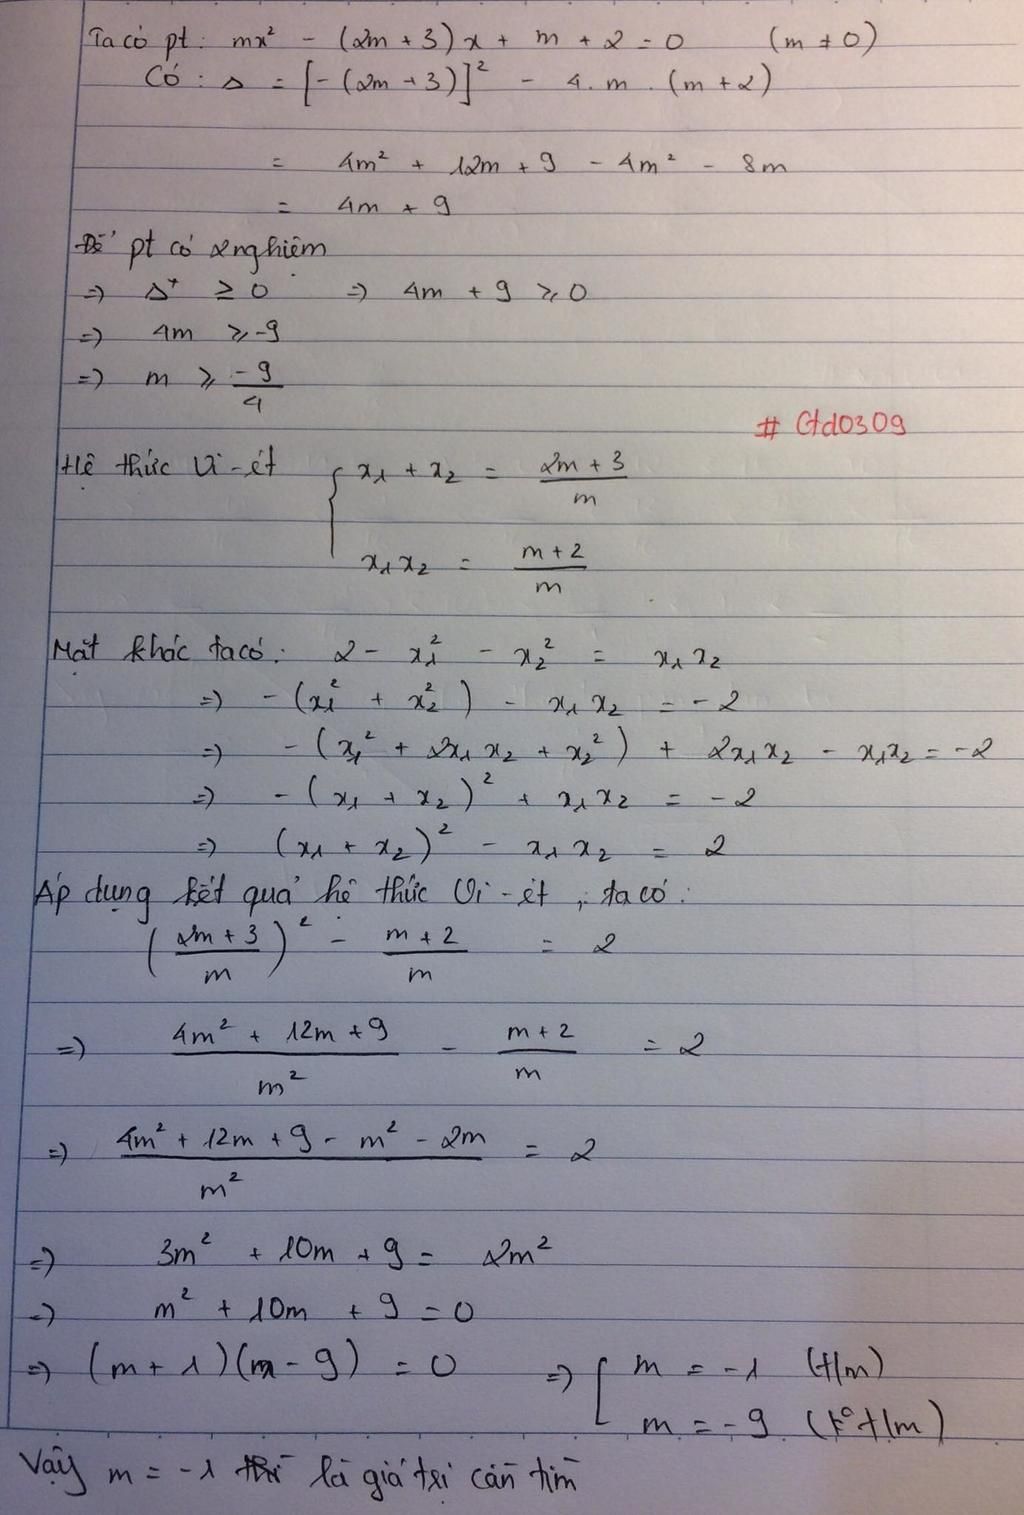 Ta có pt: mx² - (2m + 3)x + m + 2 = 0 (m ≠ 0)
Có: Δ = [-(2m + 3)]² - 4. m . (m + 2)
= 4m² + 12m + 9 - 4m² - 8m
= 4m + 9
Để pt có 2 nghiệm
=> Δ ≥ 0 => 4m + 9 ≥ 0
=> 4m ≥ -9
=> m ≥ -9/4
# Gtd0309
Hệ thức Vi-ét { x₁ + x₂ = (2m + 3)/m
x₁x₂ = (m + 2)/m
Mặt khác ta có: 2 - x₁² - x₂² = x₁x₂
=> -(x₁² + x₂²) - x₁x₂ = -2
=> -(x₁² + 2x₁x₂ + x₂²) + 2x₁x₂ - x₁x₂ = -2
=> -(x₁ + x₂)² + x₁x₂ = -2
=> (x₁ + x₂)² - x₁x₂ = 2
Áp dụng kết quả hệ thức Vi-ét, ta có:
((2m + 3)/m)² - (m + 2)/m = 2
=> (4m² + 12m + 9)/m² - (m + 2)/m = 2
=> (4m² + 12m + 9 - m² - 2m)/m² = 2
=> 3m² + 10m + 9 = 2m²
=> m² + 10m + 9 = 0
=> (m + 1)(m - 9) = 0 => [ m = -1 (t/m)
m = -9 (k° t/m)
Vậy m = -1 thì là giá trị cần tìm